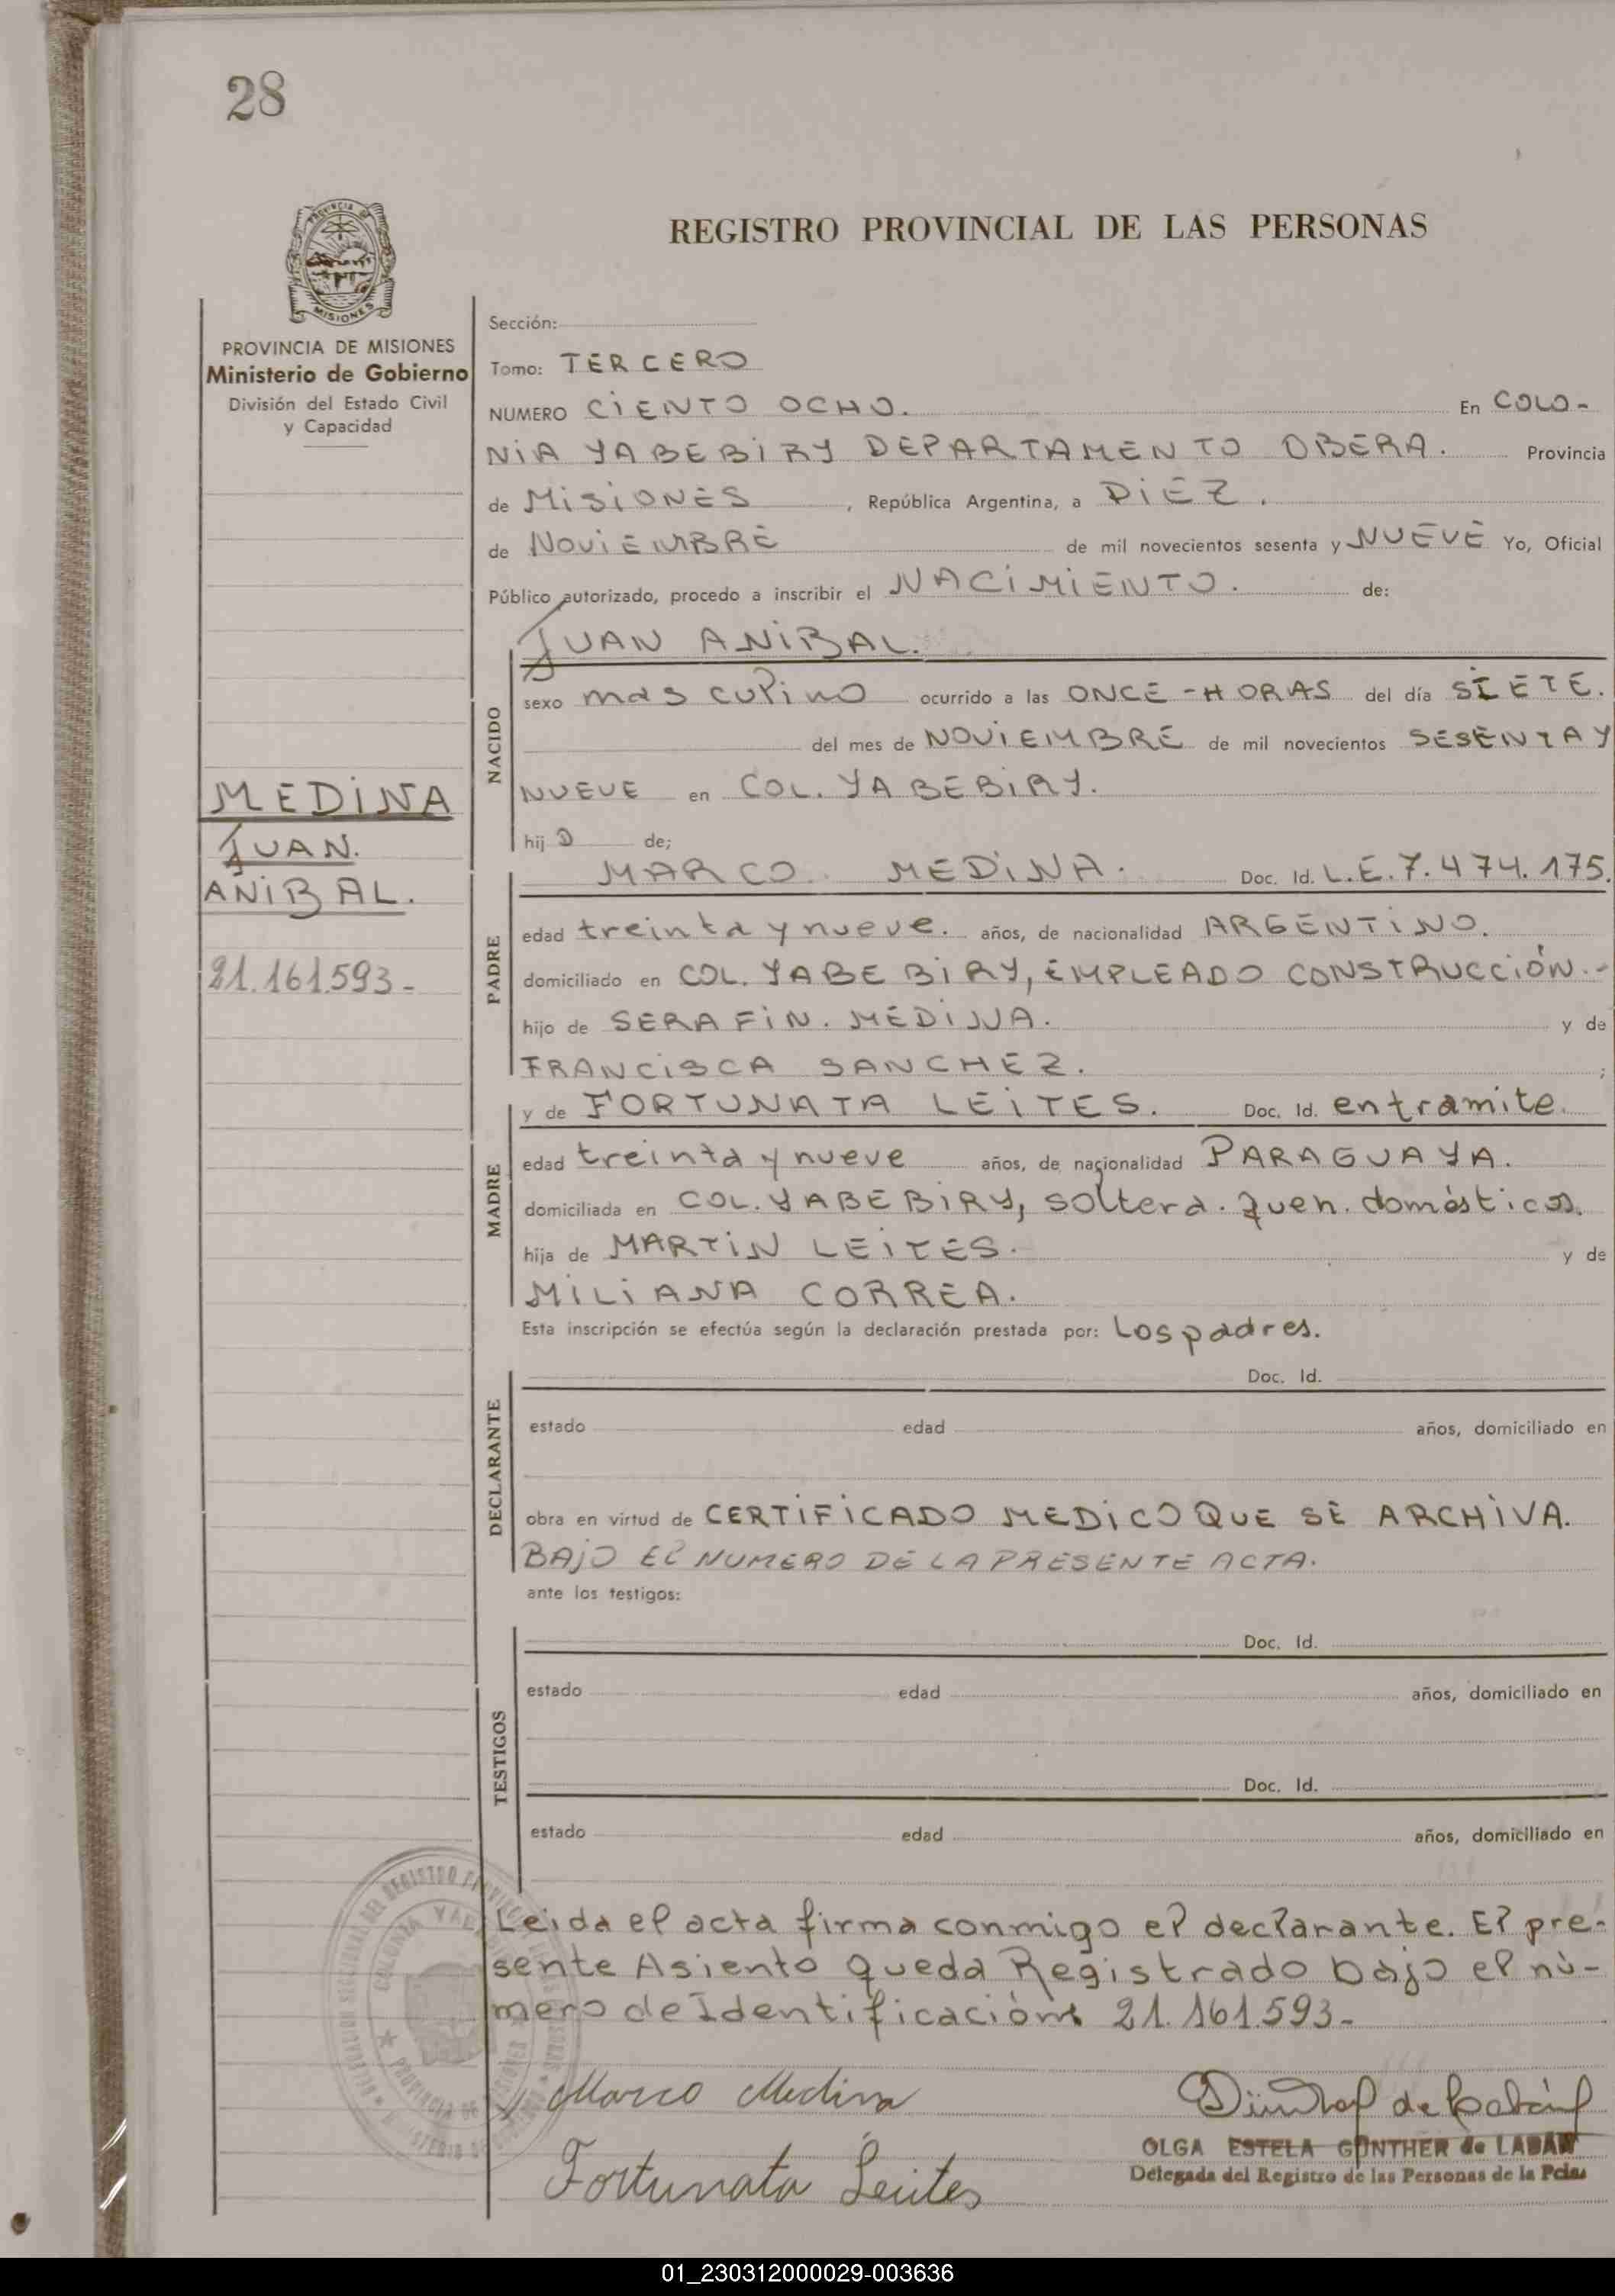 28
PROVINCIA
MISIONES
REGISTRO PROVINCIAL DE LAS PERSONAS
PROVINCIA DE MISIONES
Ministerio de Gobierno
División del Estado Civil
y Capacidad
MEDINA
JUAN.
ANIBAL.
21.161.593-
Sección:
Tomo: TERCERO
NUMERO CIENTO OCHO. En COLO-
NIA YABEBIRY DEPARTAMENTO OBERA. Provincia
de MISIONES, República Argentina, a DIEZ.
de NOVIEMBRE de mil novecientos sesenta y NUEVE Yo, Oficial
Público autorizado, procedo a inscribir el NACIMIENTO. de:
JUAN ANIBAL.
NACIDO
sexo masculino ocurrido a las ONCE-HORAS del día SIETE.
del mes de NOVIEMBRE de mil novecientos SESENTA Y
NUEVE en COL. YABEBIRY.
hijo de;
PADRE
MARCO. MEDINA. Doc. Id. L.E.7.474.175.
edad treinta y nueve. años, de nacionalidad ARGENTINO.
domiciliado en COL. YABEBIRY, EMPLEADO CONSTRUCCIÓN.-
hijo de SERAFIN. MEDINA. y de
FRANCISCA SANCHEZ. ;
MADRE
y de FORTUNATA LEITES. Doc. Id. entramite.
edad treinta y nueve años, de nacionalidad PARAGUAYA.
domiciliada en COL. YABEBIRY, soltera. queh. domésticos.
hija de MARTIN LEITES. y de
MILIANA CORREA.
Esta inscripción se efectúa según la declaración prestada por: Los padres.
DECLARANTE
Doc. Id.
estado edad años, domiciliado en
obra en virtud de CERTIFICADO MEDICO QUE SE ARCHIVA.
BAJO El NUMERO DE LA PRESENTE ACTA.
ante los testigos:
TESTIGOS
Doc. Id.
estado edad años, domiciliado en
Doc. Id.
estado edad años, domiciliado en
Leida el acta firma conmigo el declarante. El pre-
sente Asiento queda Registrado bajo el nú-
mero de Identificación 21.161.593-
Marco Medina
Fortunata Leites
OLGA ESTELA GÜNTHER de LABAN
Delegada del Registro de las Personas de la Pcia.
01_230312000029-003636